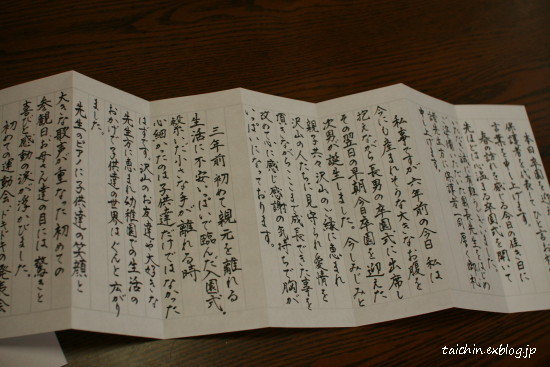 本日
保護者を代表し
言葉を申し上げます。
春の訪れを感じる今日の佳き日に
心温まる卒園式を開いて
申し上げます。
私事ですが六年前の今日、私は
今にも産まれそうな大きなお腹を
抱えながら長男の卒園式に出席し
その翌日の早朝、今日卒園を迎えた
次男が誕生しました。今しみじみと
親子共々沢山のご縁に恵まれ
沢山の人たちに見守られ愛情を
頂きながらここまで成長できた事を
改めて心に感じ感謝の気持ちで胸が
いっぱいになっております。
三年前 初めて親元を離れる
生活に不安いっぱいで臨んだ入園式。
繋いだ小さな手が離れる時
心細かったのは子供達だけではなかった
はずです。沢山のお友達や大好きな
先生方に恵まれ幼稚園での生活の
おかげで子供達の世界はぐんと広がり
ました。
先生のピアノに子供達の笑顔と
大きな歌声が重なった初めての
参観日お母さん達の目には驚きと
喜びと感動の涙が浮びました。
初めての運動会、ドキドキの発表会
taichin.exblog.jp